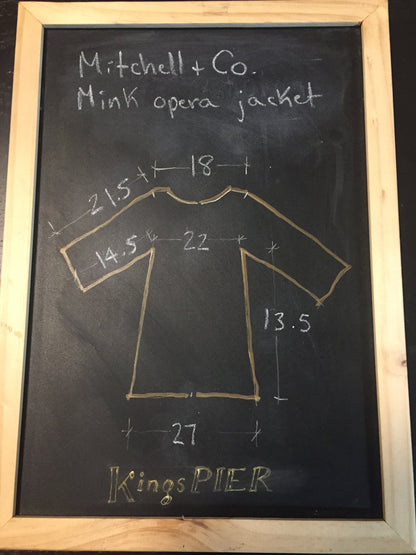 Mitchell + Co.
Mink opera jacket
18
21.5
14.5
22
13.5
27
KingsPIER